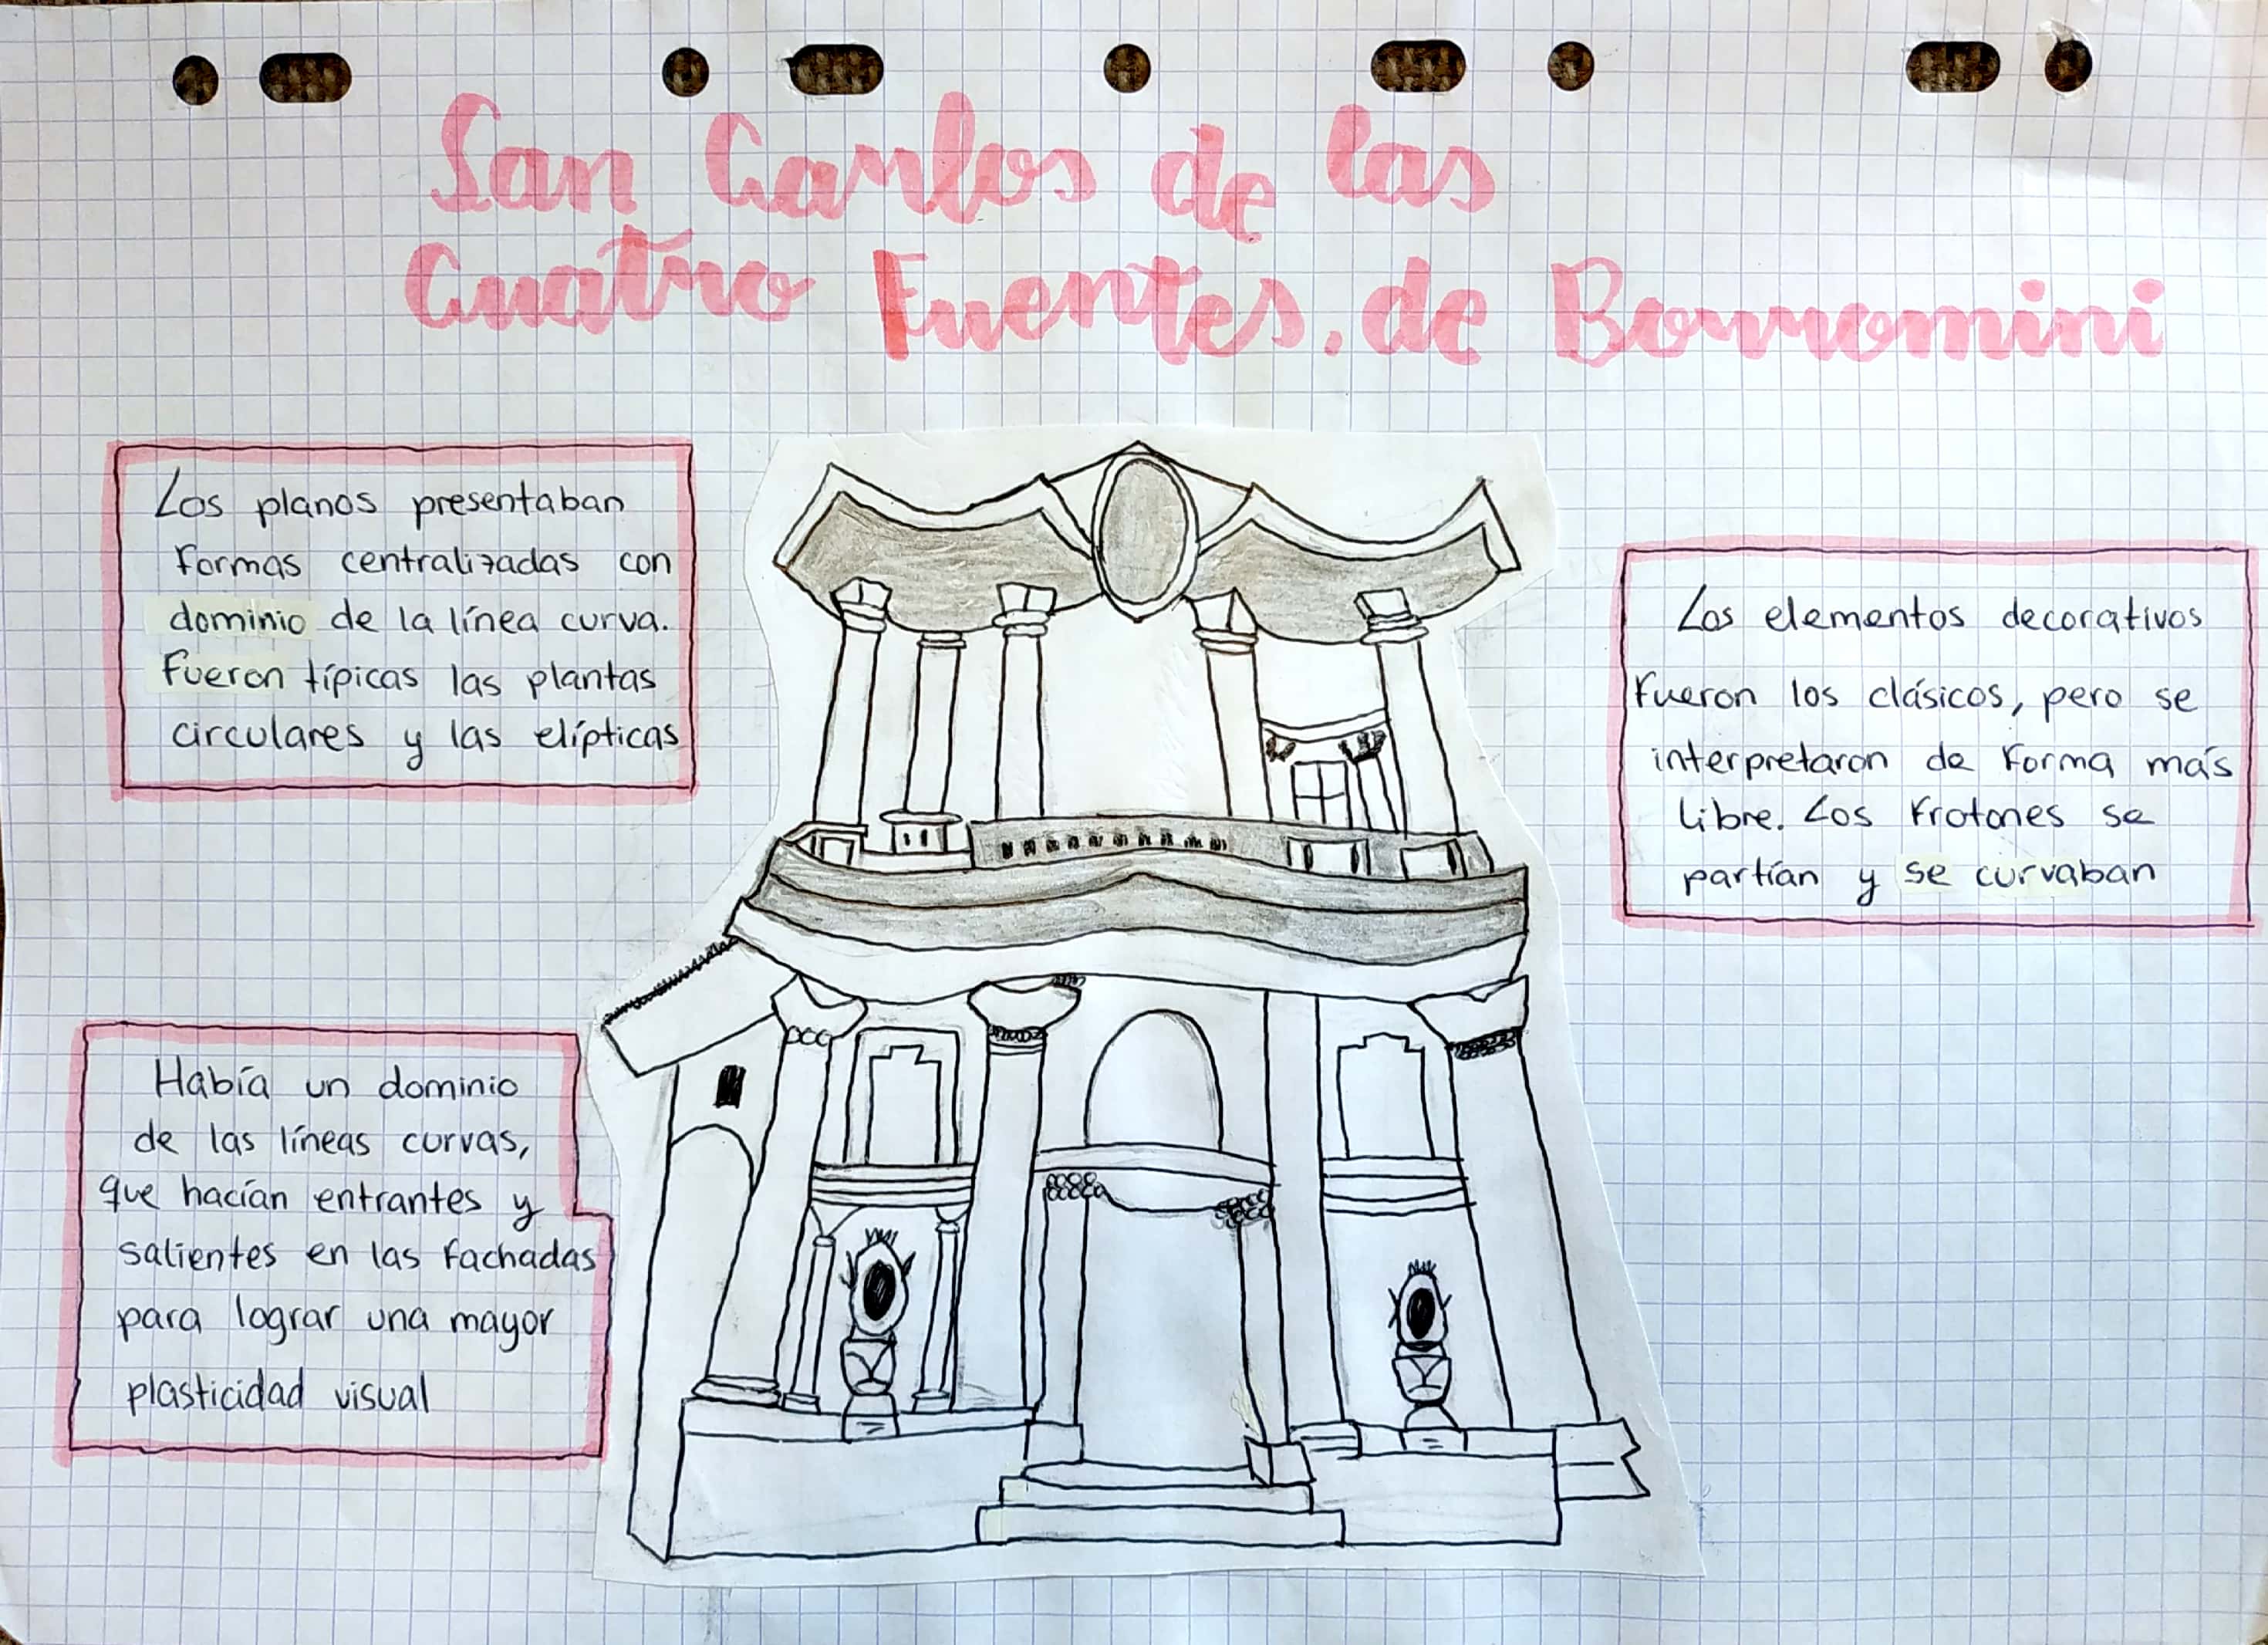 San Carlos de las
Cuatro Fuentes. de Borromini
Los planos presentaban
formas centralizadas con
dominio de la línea curva.
fueron típicas las plantas
circulares y las elípticas
Los elementos decorativos
fueron los clásicos, pero se
interpretaron de forma más
libre. Los frotones se
partían y se curvaban
Había un dominio
de las líneas curvas,
que hacían entrantes y
salientes en las fachadas
para lograr una mayor
plasticidad visual